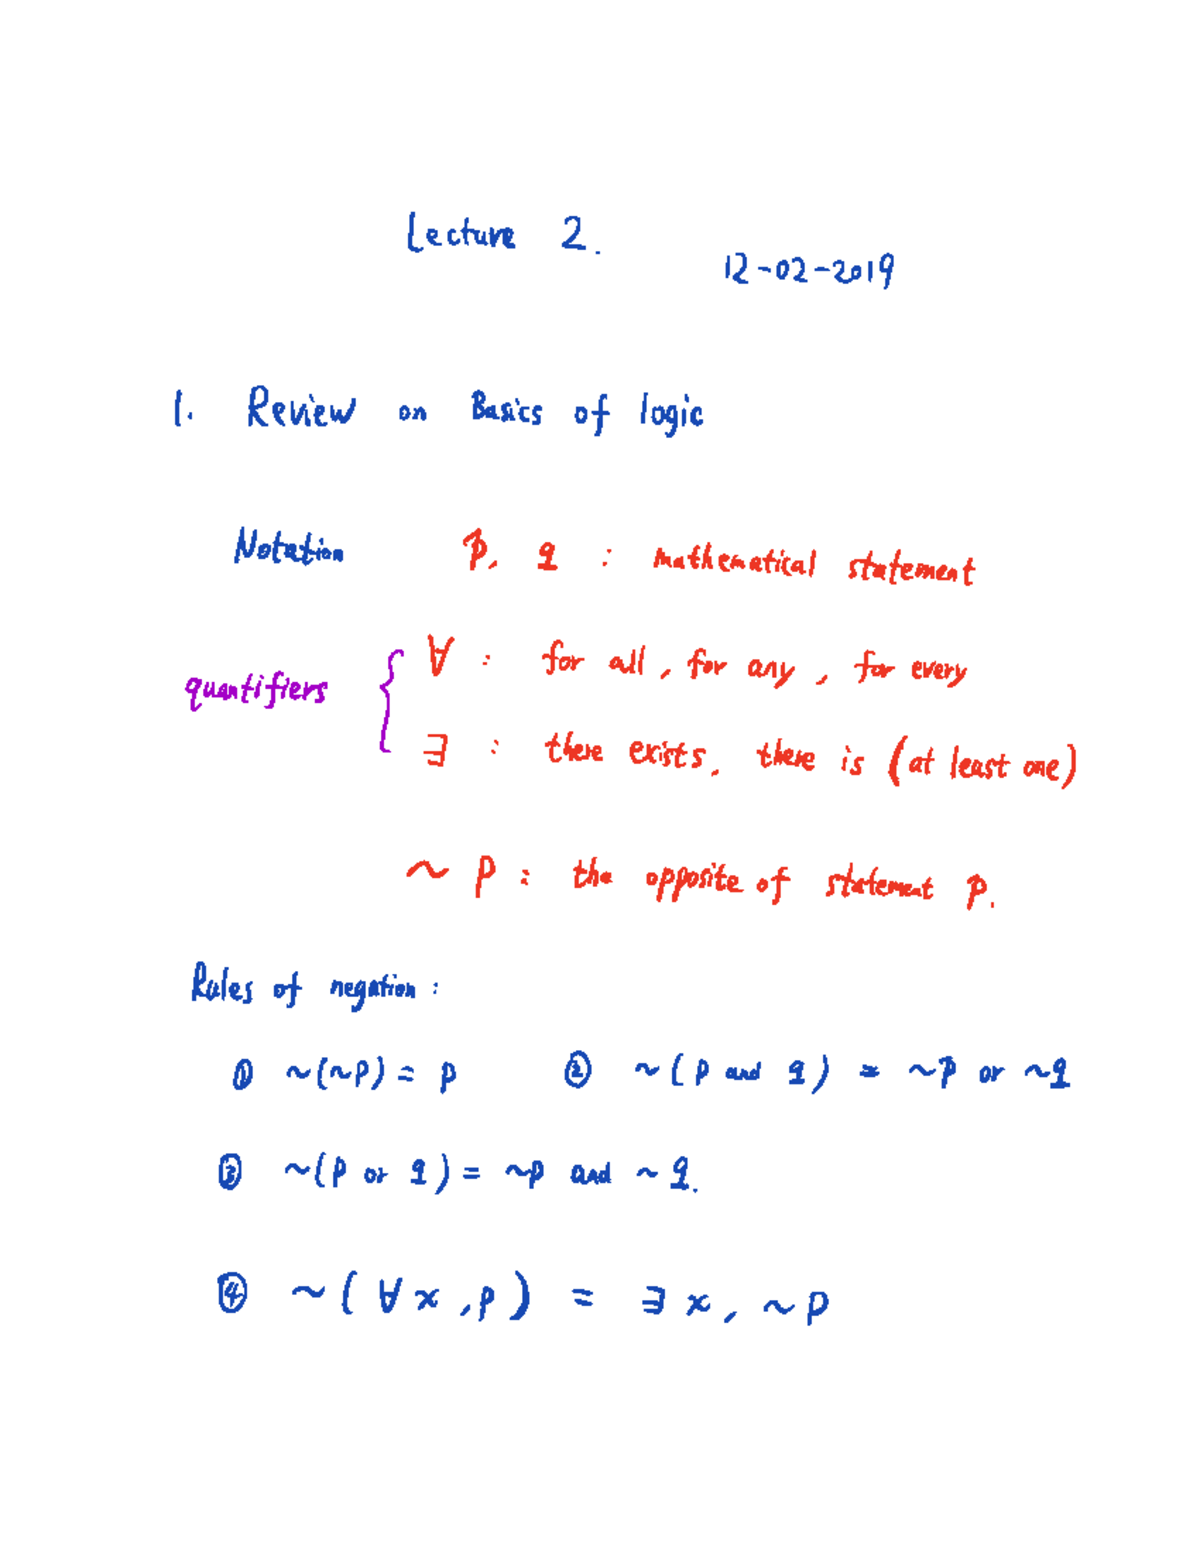 Lecture 2.
12-02-2019
1. Review on Basics of logic
Notation p, q : mathematical statement
quantifiers { ∀ : for all, for any, for every
∃ : there exists, there is (at least one)
~ p : the opposite of statement p.
Rules of negation :
① ~(~p) = p ② ~( p and q ) = ~p or ~q
③ ~(p or q) = ~p and ~ q.
④ ~( ∀ x , p ) = ∃ x, ~ p